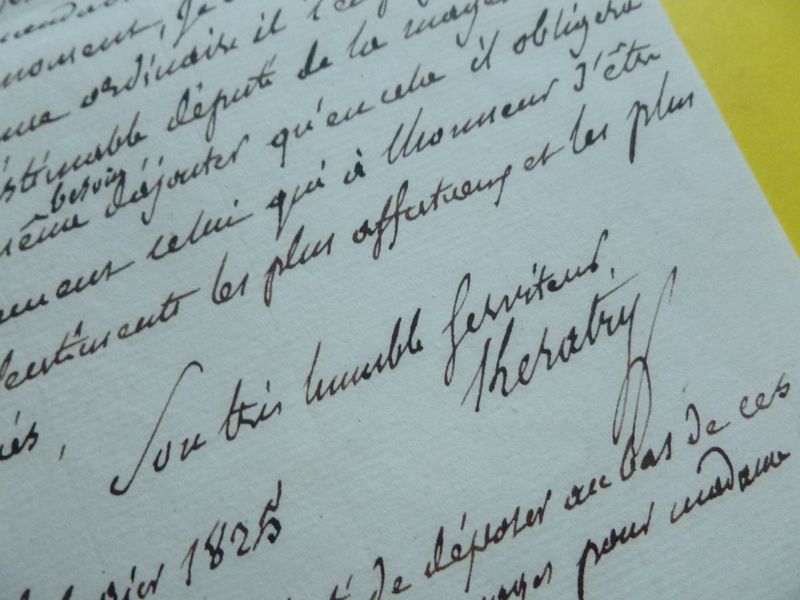 moment, je
ordinaire il l'
estimable député de la
besoin
même d'ajouter qu'en cela il obligera
celui qui à lhonneur d'être
sentiments les plus affectueux et les plus
Son très humble Serviteur,
Keratry
1825
de déposer au bas de ces
pour madame